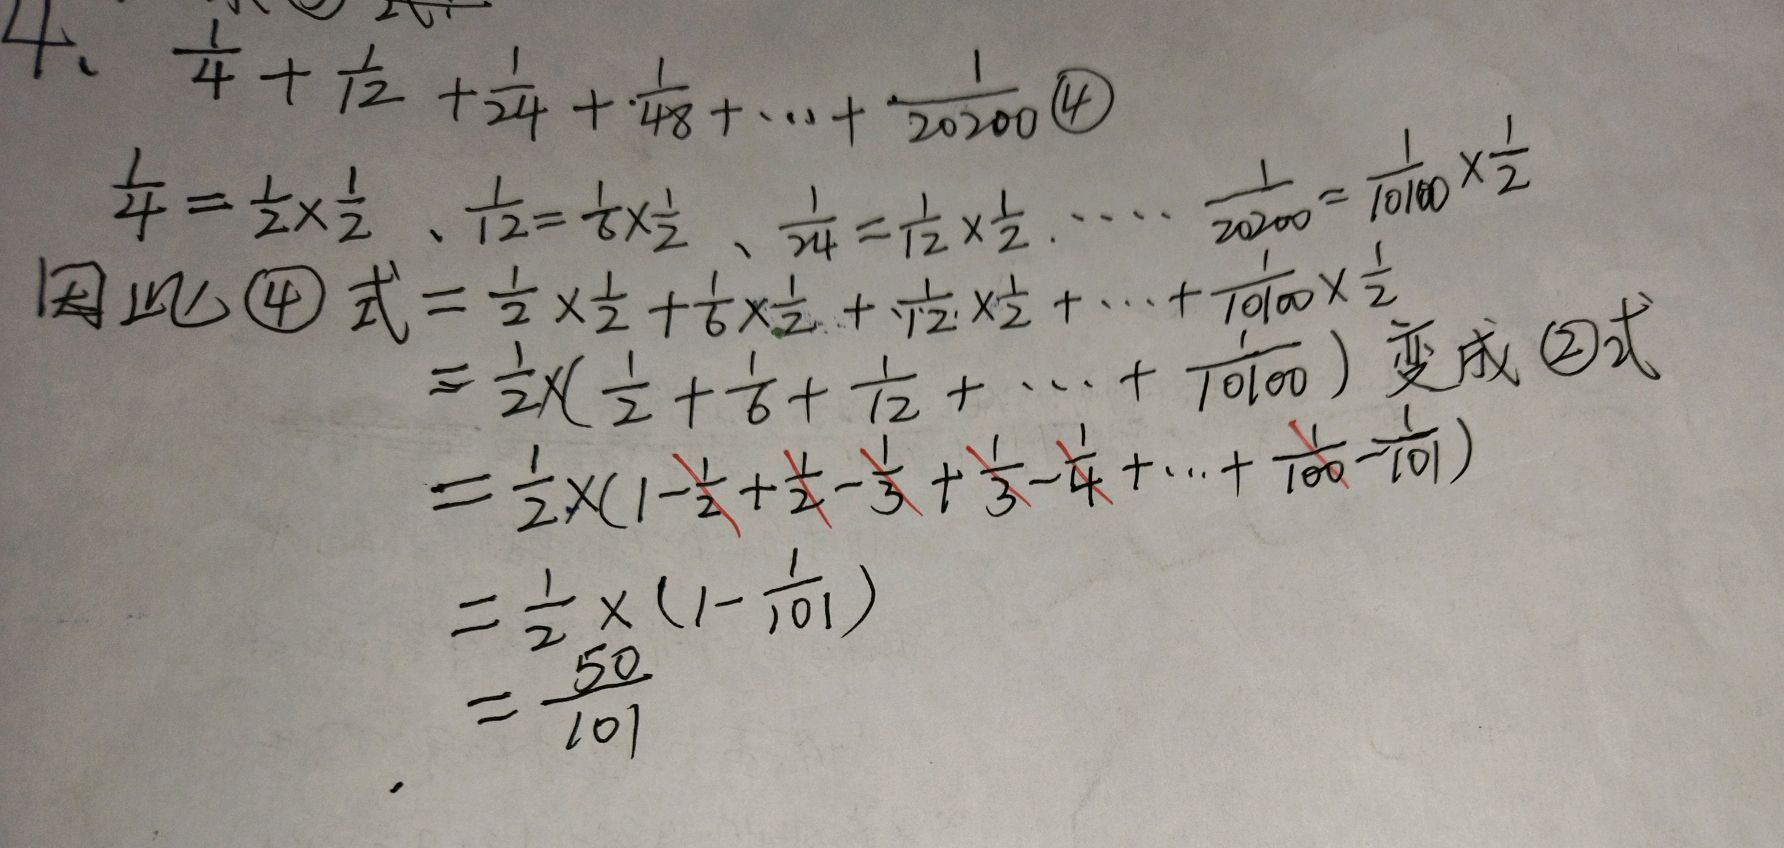 4、 1/4 + 1/12 + 1/24 + 1/48 + ... + 1/20200 ④
1/4 = 1/2 × 1/2 、 1/12 = 1/6 × 1/2 、 1/24 = 1/12 × 1/2 ..... 1/20200 = 1/10100 × 1/2
因此 ④ 式 = 1/2 × 1/2 + 1/6 × 1/2 + 1/12 × 1/2 + ... + 1/10100 × 1/2
= 1/2 × ( 1/2 + 1/6 + 1/12 + ... + 1/10100 ) 变成 ② 式
= 1/2 × ( 1 - 1/2 + 1/2 - 1/3 + 1/3 - 1/4 + ... + 1/100 - 1/101 )
= 1/2 × ( 1 - 1/101 )
= 50/101